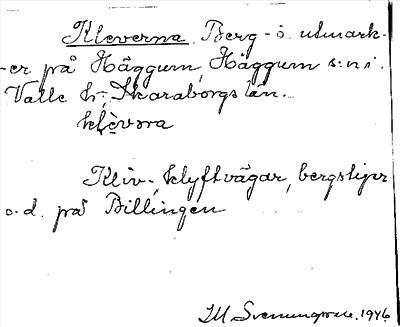 Kleverna. Berg- o. utmark-
-er på Häggum, Häggum s:n i.
Valle h., Skaraborgs län.
klèvora
Kliv-, klyftvägar, bergstigar
o.d. på Billingen
M Svenungsson. 1946